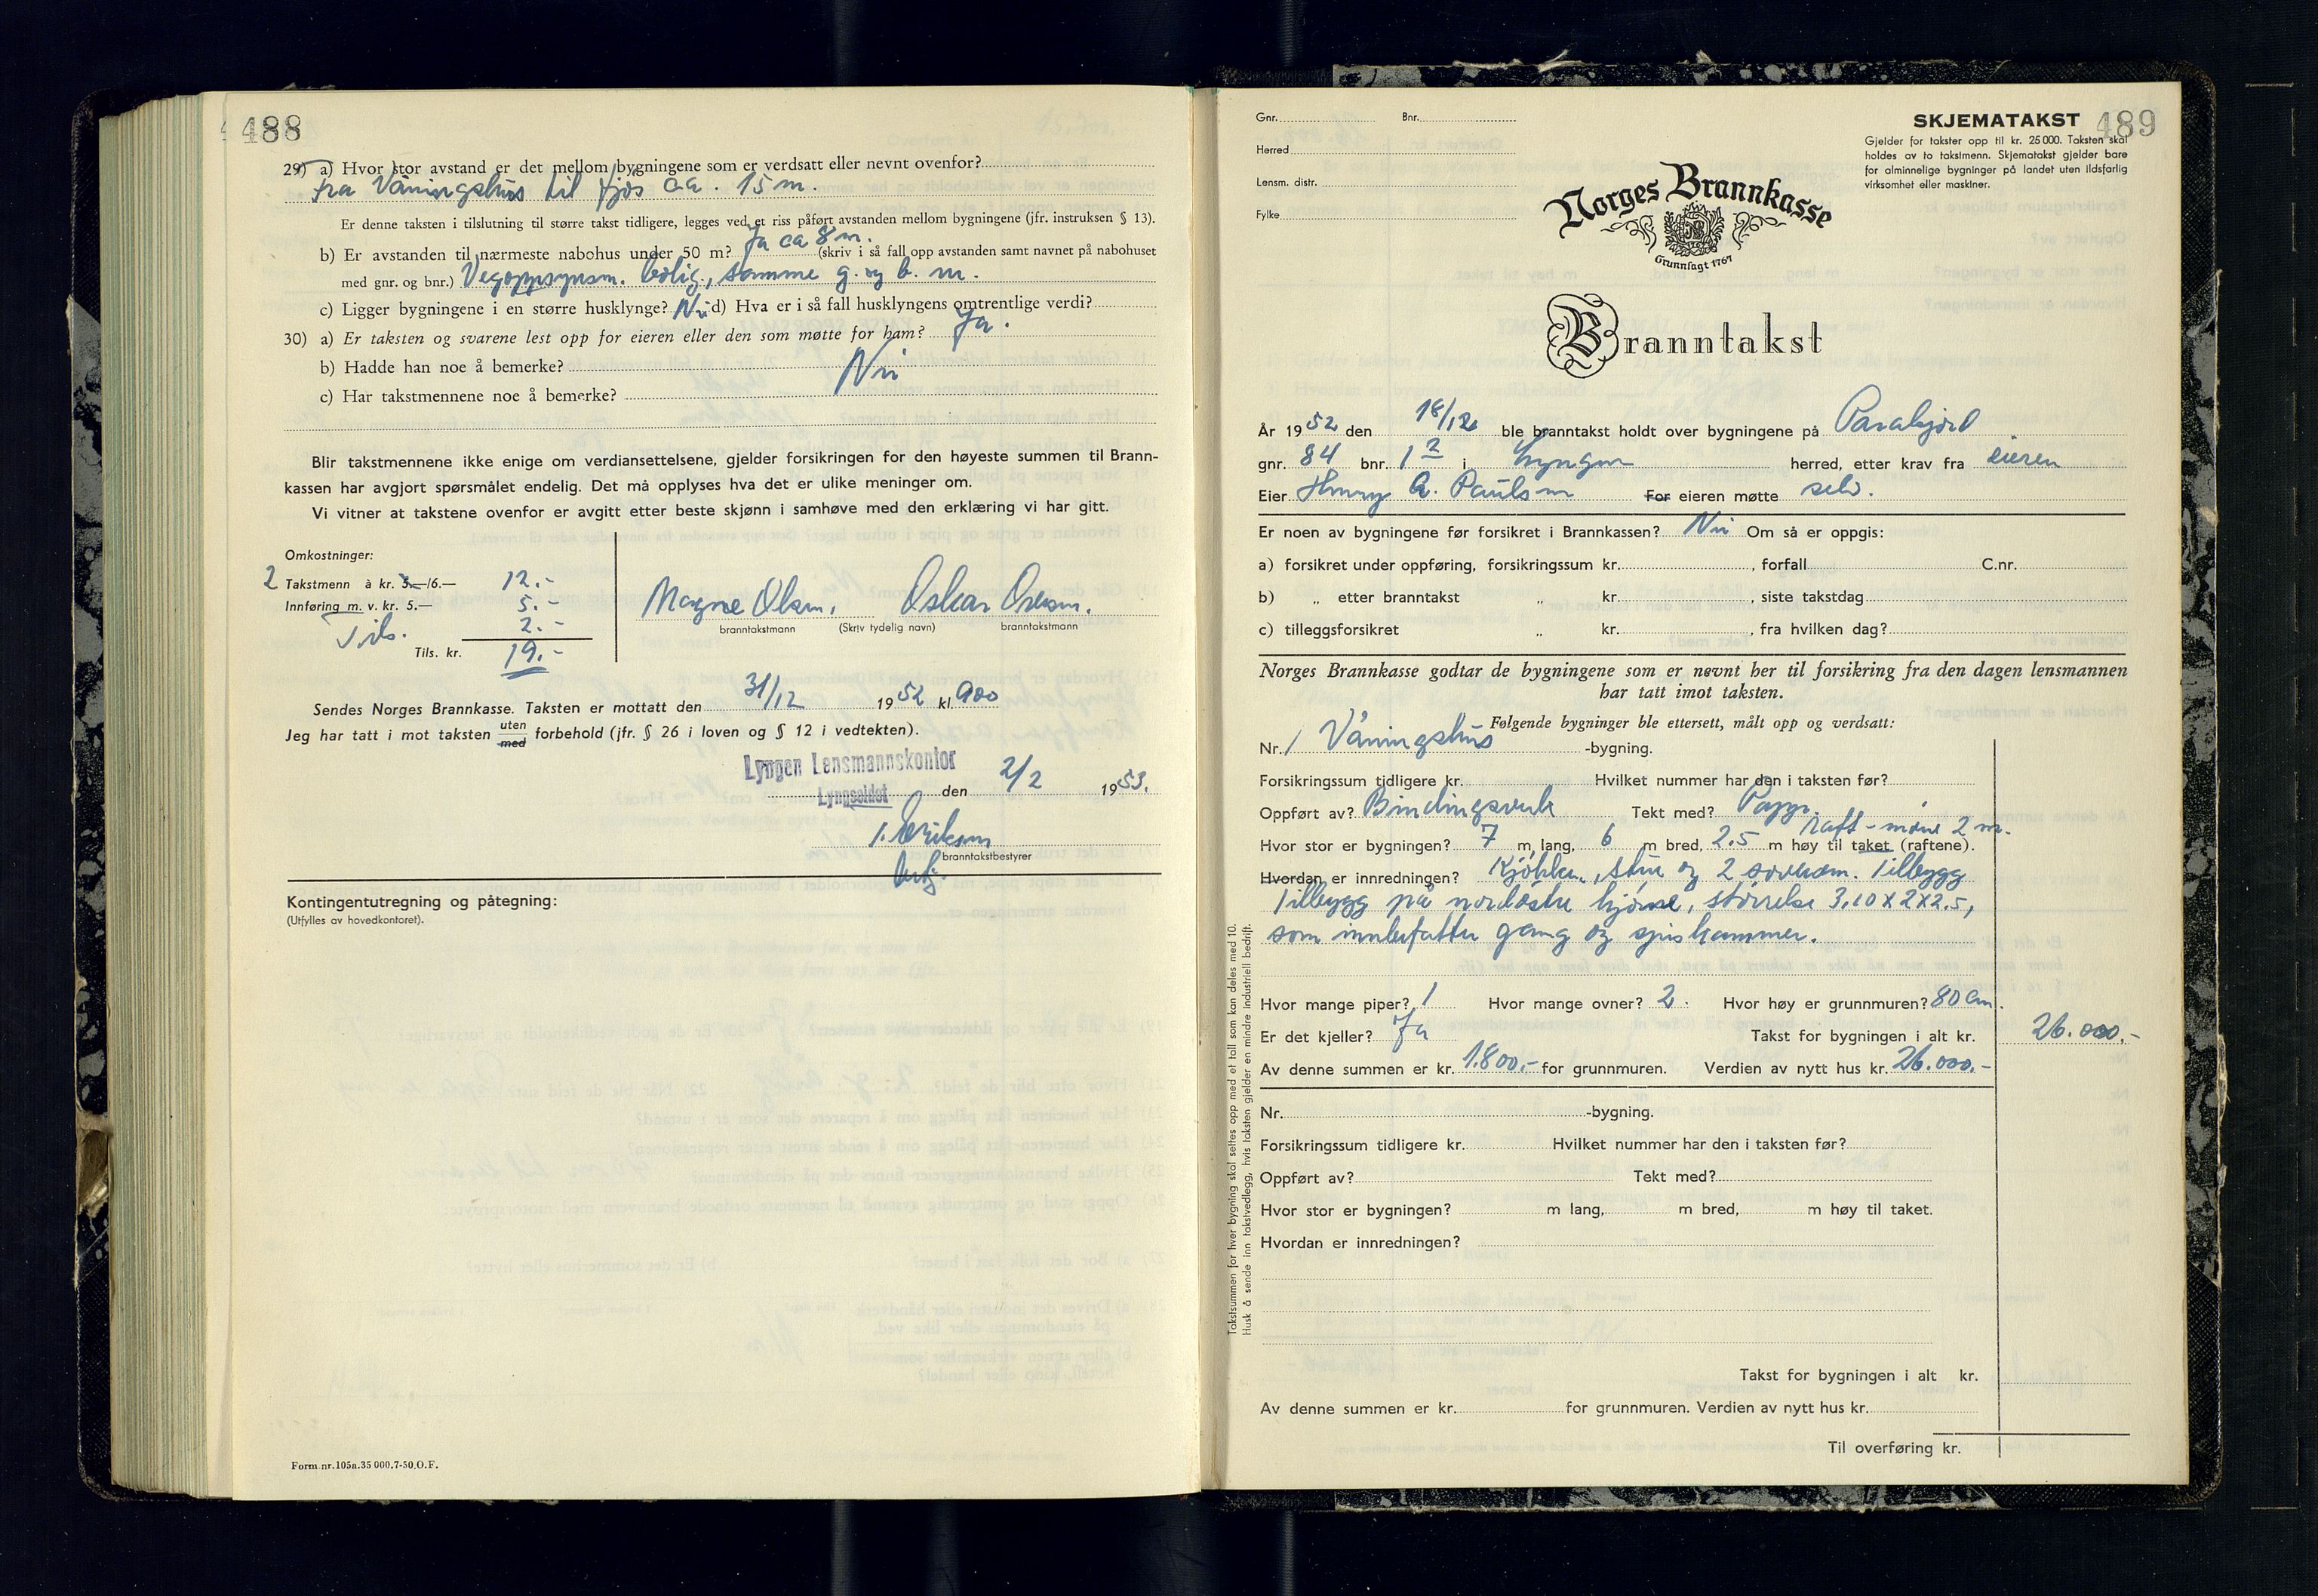 488
29) a) Hvor stor avstand er det mellom bygningene som er verdsatt eller nevnt ovenfor?
Fra Våningshus til fjøs ca. 15 m.
Er denne taksten i tilslutning til større takst tidligere, legges ved et riss påført avstanden mellom bygningene (jfr. instruksen § 13).
b) Er avstanden til nærmeste nabohus under 50 m? Ja ca 8 m. (skriv i så fall opp avstanden samt navnet på nabohuset
med gnr. og bnr.) Vegoppsynsm. bolig, samme g. og b. nr.
c) Ligger bygningene i en større husklynge? Nei d) Hva er i så fall husklyngens omtrentlige verdi?
30) a) Er taksten og svarene lest opp for eieren eller den som møtte for ham? Ja.
b) Hadde han noe å bemerke? Nei
c) Har takstmennene noe å bemerke?
Blir takstmennene ikke enige om verdiansettelsene, gjelder forsikringen for den høyeste summen til Brann-
kassen har avgjort spørsmålet endelig. Det må opplyses hva det er ulike meninger om.
Vi vitner at takstene ovenfor er avgitt etter beste skjønn i samhøve med den erklæring vi har gitt.
Omkostninger:
2 Takstmenn à kr. 5.—/6.— 12.-
Innføring m. v. kr. 5.— 5.-
2.-
Tils. kr. 19.-
Magne Olsen. Oskar
branntakstmann (Skriv tydelig navn) branntakstmann
Sendes Norges Brannkasse. Taksten er mottatt den 31/12 1952 kl. 900
Jeg har tatt i mot taksten uten med forbehold (jfr. § 26 i loven og § 12 i vedtekten).
Lyngen Lensmannskontor
Lyngseidet den 2/2 1953.
branntakstbestyrer
Kontingentutregning og påtegning:
(Utfylles av hovedkontoret).
Form.nr.105a.35 000.7-50.O.F.
489
Gnr. Bnr.
Herred
Lensm. distr.
Fylke
SKJEMATAKST
Gjelder for takster opp til kr. 25 000. Taksten skal
holdes av to takstmenn. Skjematakst gjelder bare
for alminnelige bygninger på landet uten ildsfarlig
virksomhet eller maskiner.
Norges Brannkasse
Grunnlagt 1767
Branntakst
År 1952 den 18/12 ble branntakst holdt over bygningene på
gnr. 84 bnr. 1 2 i Lyngen herred, etter krav fra eieren
Eier Henry A. Paulsen For eieren møtte selv.
Er noen av bygningene før forsikret i Brannkassen? Nei Om så er oppgis:
a) forsikret under oppføring, forsikringssum kr. , forfall C.nr.
b) „ etter branntakst „ kr. , siste takstdag
c) tilleggsforsikret „ kr. , fra hvilken dag?
Norges Brannkasse godtar de bygningene som er nevnt her til forsikring fra den dagen lensmannen
har tatt imot taksten.
Følgende bygninger ble ettersett, målt opp og verdsatt:
Nr. 1 Våningshus -bygning.
Forsikringssum tidligere kr. Hvilket nummer har den i taksten før?
Oppført av? Bindingsverk Tekt med? Papp.
raft - møne 2 m.
Hvor stor er bygningen? 7 m lang, 6 m bred, 2.5 m høy til taket (raftene).
Hvordan er innredningen? Kjøkken, stue og 2 soverom. Tilbygg
Tilbygg på nordøstre hjørne, størrelse 3.10 x 2 x 2.5,
som innbefatter gang og spiskammer.
Hvor mange piper? 1 Hvor mange ovner? 2. Hvor høy er grunnmuren? 80 cm.
Er det kjeller? Ja Takst for bygningen i alt kr. 26.000.-
Av denne summen er kr. 1.800.- for grunnmuren. Verdien av nytt hus kr. 26.000.-
Nr. -bygning.
Forsikringssum tidligere kr. Hvilket nummer har den i taksten før?
Oppført av? Tekt med?
Hvor stor er bygningen? m lang, m bred, m høy til taket.
Hvordan er innredningen?
Takst for bygningen i alt kr.
Av denne summen er kr. for grunnmuren. Verdien av nytt hus kr.
Til overføring kr.
Takstsummen for hver bygning skal settes opp med et tall som kan deles med 10.
Husk å sende inn takstvedlegg, hvis taksten gjelder en mindre industriell bedrift.